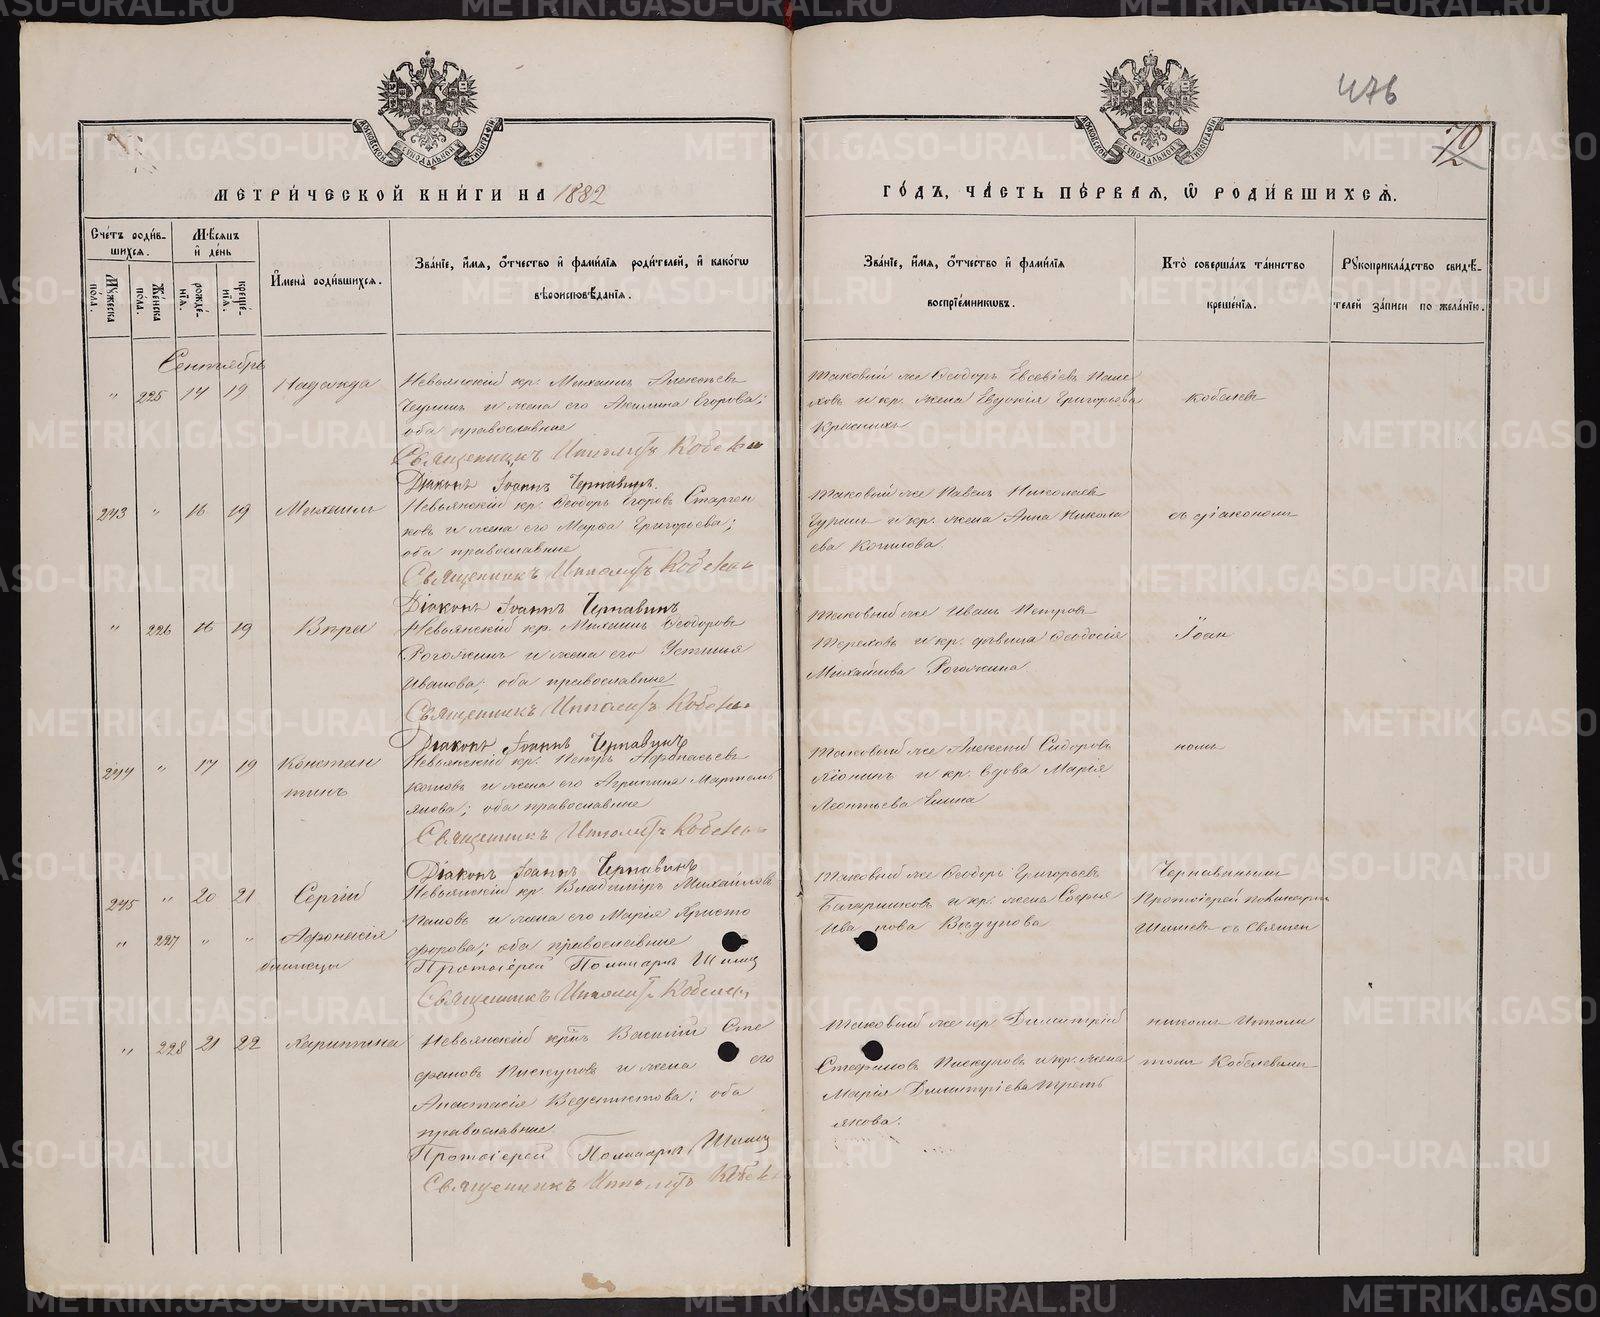 476
72
МОСКОВСКОЙ СѴНОДАЛЬНОЙ ТИПОГРАФІИ
МЕТРИ́ЧЕСКОЙ КНИ́ГИ НА 1882
ГО́ДЪ, ЧА́СТЬ ПЕ́РВАЯ, Ѡ РОДИ́ВШИХСЯ.
Сче́тъ роди́в-
шихся.
Мѣ́сяцъ
и҆ де́нь
Мꙋ́жеска
по́ла.
Же́нска
по́ла.
рожде́-
нїя.
креще́-
нїя.
И҆мена̀ роди́вшихся.
Зва́нїе, и҆́мя, ѻ҆́тчество и҆ фами́лїя роди́телей, и҆ како́гѡ
вѣроисповѣ́данїя.
Зва́нїе, и҆́мя, ѻ҆́тчество и҆ фами́лїя
воспрїе́мникѡвъ.
Кто̀ соверша́лъ та́инство
креще́нїя.
Рꙋкоприкла́дство свидѣ́-
телей за́писи по жела́нїю.
Сентябрь
" 225 17 19 Надежда
Невьянскій кр. Михаилъ Алексѣевъ
и жена его Акилина Егорова;
оба православные
Священникъ Ипполитъ Кобелевъ
Діаконъ Іоаннъ Чернавинъ.
Таковый же Ѳеодоръ Евсевіевъ
и кр. жена Евдокія Григорьева
Красныхъ
Кобелевъ
243 " 16 19 Михаилъ
Невьянскій кр. Ѳеодоръ Егоровъ Старчен
ковъ и жена его Марѳа Григорьева;
оба православные
Священникъ Ипполитъ Кобелевъ
Діаконъ Іоаннъ Чернавинъ
Таковый же Павелъ Николаевъ
и кр. жена Анна Никола
ева Копылова.
съ діакономъ
" 226 16 19 Вѣра
Невьянскій кр. Михаилъ Ѳеодоровъ
Рогожинъ и жена его Устинія
Иванова; оба православные
Священникъ Ипполитъ Кобелевъ
Діаконъ Іоаннъ Чернавинъ
Таковый же Иванъ Петровъ
Тереховъ и кр. дѣвица Ѳеодосія
Михайлова Рогожина
Іоан
244 " 17 19 Констан
тинъ
Невьянскій кр. Петръ Аѳонасьевъ
Котовъ и жена его Агрипина Мартемь
янова; оба православные
Священникъ Ипполитъ Кобелевъ
Діаконъ Іоаннъ Чернавинъ
Таковый же Алексѣй Сидоровъ
и кр. вдова Марія
Леонтьева
номъ
245 " 20 21 Сергій
" 227 " " Аѳонасія
близнецы
Невьянскій кр. Владиміръ Михайловъ
Поповъ и жена его Марія Христо
форова; оба православные
Протоіерей Поликарпъ
Священникъ Ипполитъ Кобелевъ
Таковый же Ѳеодоръ Григорьевъ
и кр. жена Софья
Ива нова
Чернавинымъ
Протоіерей Поликарпъ
съ Священ
" 228 21 22 Харитина
Невьянскій кр. Василій Сте
фановъ Пискуновъ и жена его
Анастасія Ведениктова; оба
православные
Протоіерей Поликарпъ
Священникъ Ипполитъ Кобелевъ
Таковый же кр. Димитрій
Стефановъ Пискуновъ и кр. жена
Марія Димитріева Треть
якова.
никомъ Ипполи
томъ Кобелевымъ
METRIKI.GASO-URAL.RU